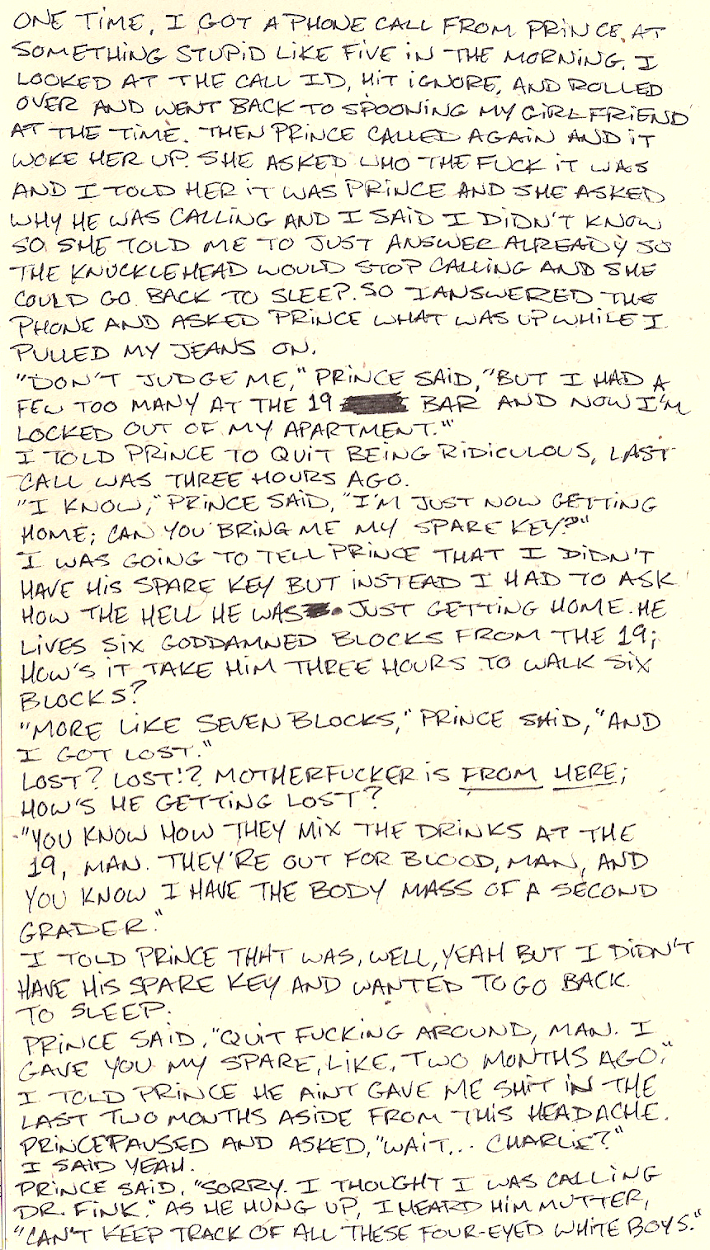 ONE TIME, I GOT A PHONE CALL FROM PRINCE AT
SOMETHING STUPID LIKE FIVE IN THE MORNING. I
LOOKED AT THE CALL ID, HIT IGNORE, AND ROLLED
OVER AND WENT BACK TO SPOONING MY GIRLFRIEND
AT THE TIME. THEN PRINCE CALLED AGAIN AND IT
WOKE HER UP. SHE ASKED WHO THE FUCK IT WAS
AND I TOLD HER IT WAS PRINCE AND SHE ASKED
WHY HE WAS CALLING AND I SAID I DIDN'T KNOW
SO SHE TOLD ME TO JUST ANSWER ALREADY SO
THE KNUCKLEHEAD WOULD STOP CALLING AND SHE
COULD GO BACK TO SLEEP. SO I ANSWERED THE
PHONE AND ASKED PRINCE WHAT WAS UP WHILE I
PULLED MY JEANS ON.
"DON'T JUDGE ME," PRINCE SAID, "BUT I HAD A
FEW TOO MANY AT THE 19 BAR AND NOW I'M
LOCKED OUT OF MY APARTMENT."
I TOLD PRINCE TO QUIT BEING RIDICULOUS, LAST
CALL WAS THREE HOURS AGO.
"I KNOW," PRINCE SAID, "I'M JUST NOW GETTING
HOME; CAN YOU BRING ME MY SPARE KEY?"
I WAS GOING TO TELL PRINCE THAT I DIDN'T
HAVE HIS SPARE KEY BUT INSTEAD I HAD TO ASK
HOW THE HELL HE WAS JUST GETTING HOME. HE
LIVES SIX GODDAMNED BLOCKS FROM THE 19;
HOW'S IT TAKE HIM THREE HOURS TO WALK SIX
BLOCKS?
"MORE LIKE SEVEN BLOCKS," PRINCE SAID, "AND
I GOT LOST."
LOST? LOST!? MOTHERFUCKER IS FROM HERE;
HOW'S HE GETTING LOST?
"YOU KNOW HOW THEY MIX THE DRINKS AT THE
19, MAN. THEY'RE OUT FOR BLOOD, MAN, AND
YOU KNOW I HAVE THE BODY MASS OF A SECOND
GRADER."
I TOLD PRINCE THAT WAS, WELL, YEAH BUT I DIDN'T
HAVE HIS SPARE KEY AND WANTED TO GO BACK
TO SLEEP.
PRINCE SAID, "QUIT FUCKING AROUND, MAN. I
GAVE YOU MY SPARE, LIKE, TWO MONTHS AGO."
I TOLD PRINCE HE AINT GAVE ME SHIT IN THE
LAST TWO MONTHS ASIDE FROM THIS HEADACHE.
PRINCE PAUSED AND ASKED, "WAIT... CHARLIE?"
I SAID YEAH.
PRINCE SAID, "SORRY. I THOUGHT I WAS CALLING
DR. FINK." AS HE HUNG UP, I HEARD HIM MUTTER,
"CAN'T KEEP TRACK OF ALL THESE FOUR-EYED WHITE BOYS."